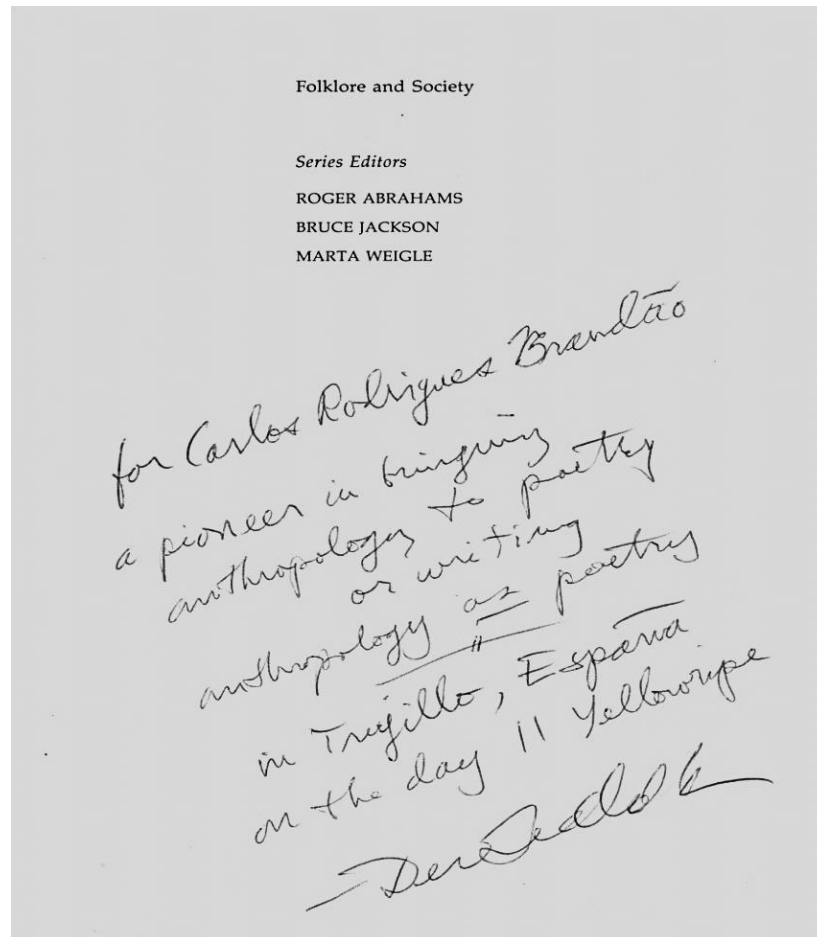 Folklore and Society
Series Editors
ROGER ABRAHAMS
BRUCE JACKSON
MARTA WEIGLE
for Carlos Rodrigues Brandão
a pioneer in bringing
anthropology to poetry
or writing
anthropology as poetry
in Trujillo, España
on the day 11 Yellowripe